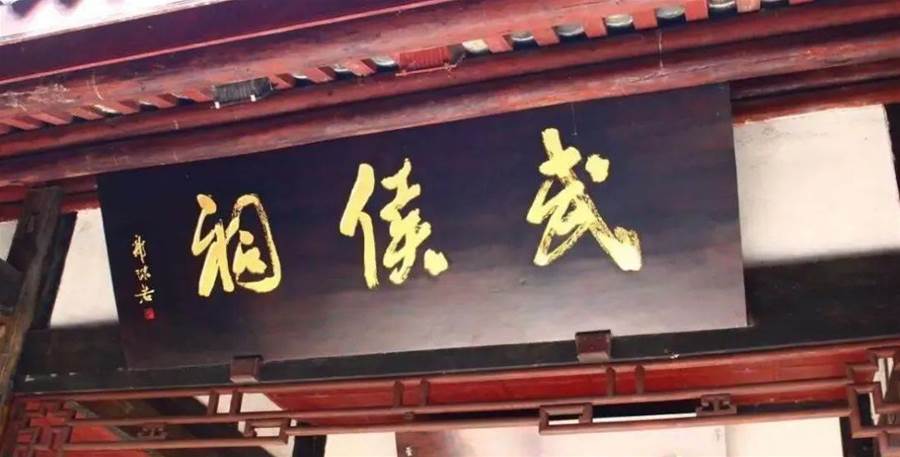 武侯祠
郭沫若